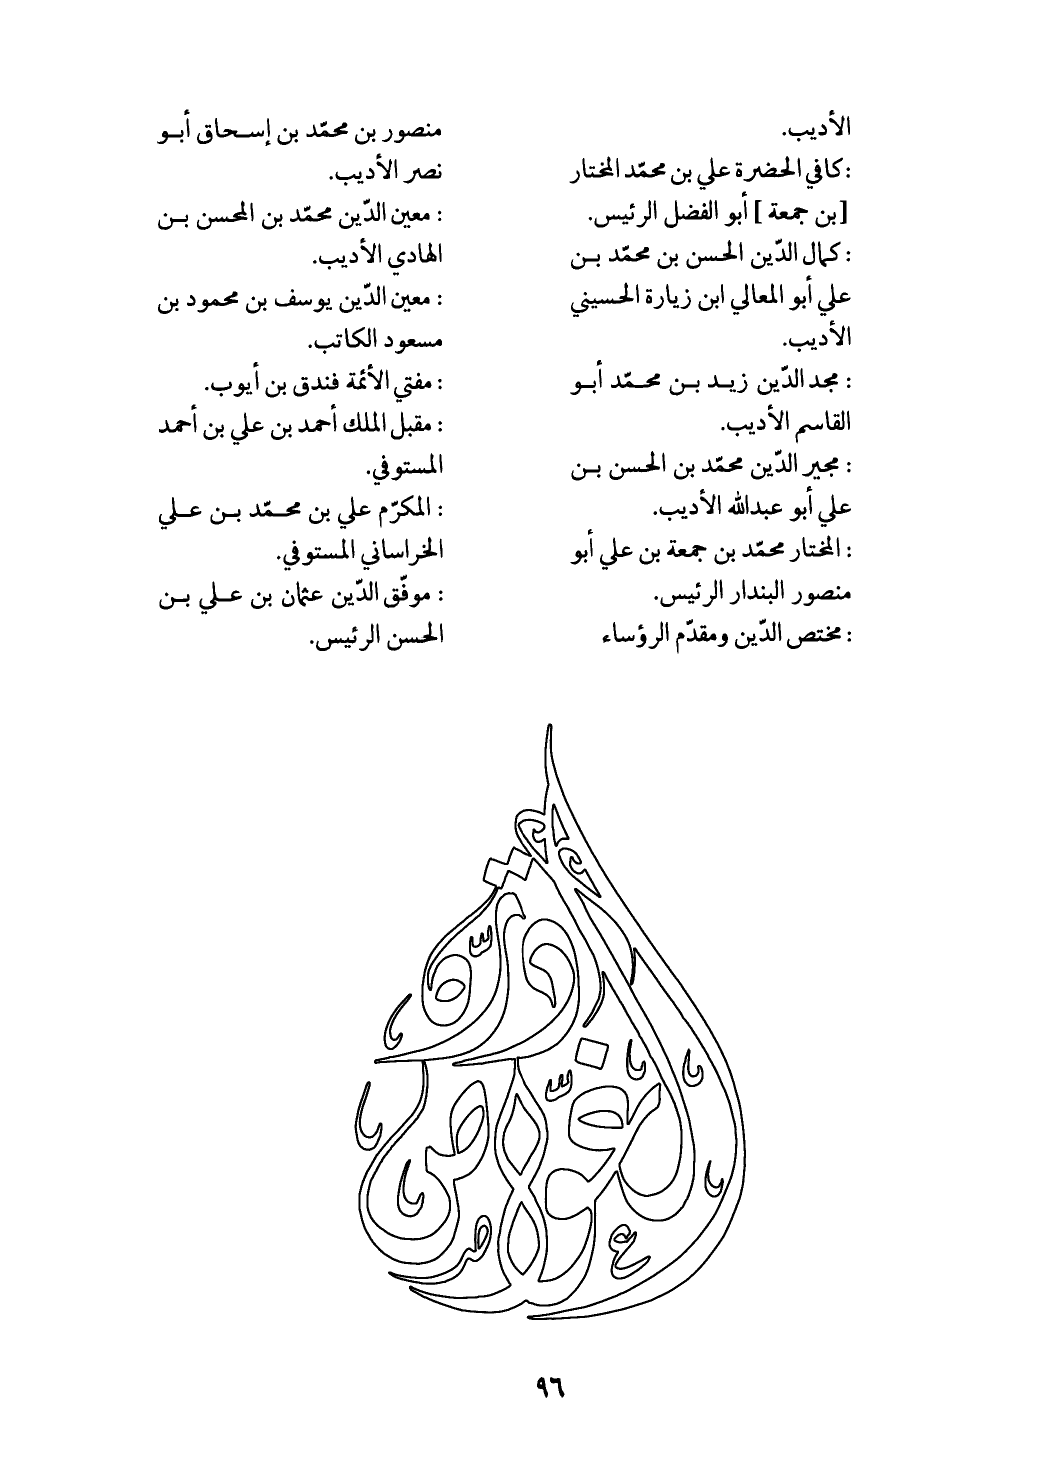 الأديب.
: كافي الحضرة علي بن محمّد المختار
[بن جمعة] أبو الفضل الرئيس.
: كمال الدّين الحسن بن محمّد بن
علي أبو المعالي ابن زيارة الحسيني
الأديب.
: مجد الدّين زيد بن محمّد أبو
القاسم الأديب.
: مجير الدّين محمّد بن الحسن بن
علي أبو عبدالله الأديب.
: المختار محمّد بن جمعة بن علي أبو
منصور البندار الرئيس.
: مختص الدّين ومقدّم الرؤساء
منصور بن محمّد بن إسحاق أبو
نصر الأديب.
: معين الدّين محمّد بن المحسن بن
الهادي الأديب.
: معين الدّين يوسف بن محمود بن
مسعود الكاتب.
: مفتي الأئمة فندق بن أيوب.
: مقبل الملك أحمد بن علي بن أحمد
المستوفي.
: المكرّم علي بن محمّد بن علي
الخراساني المستوفي.
: موفّق الدّين عثمان بن علي بن
الحسن الرئيس.
٩٦